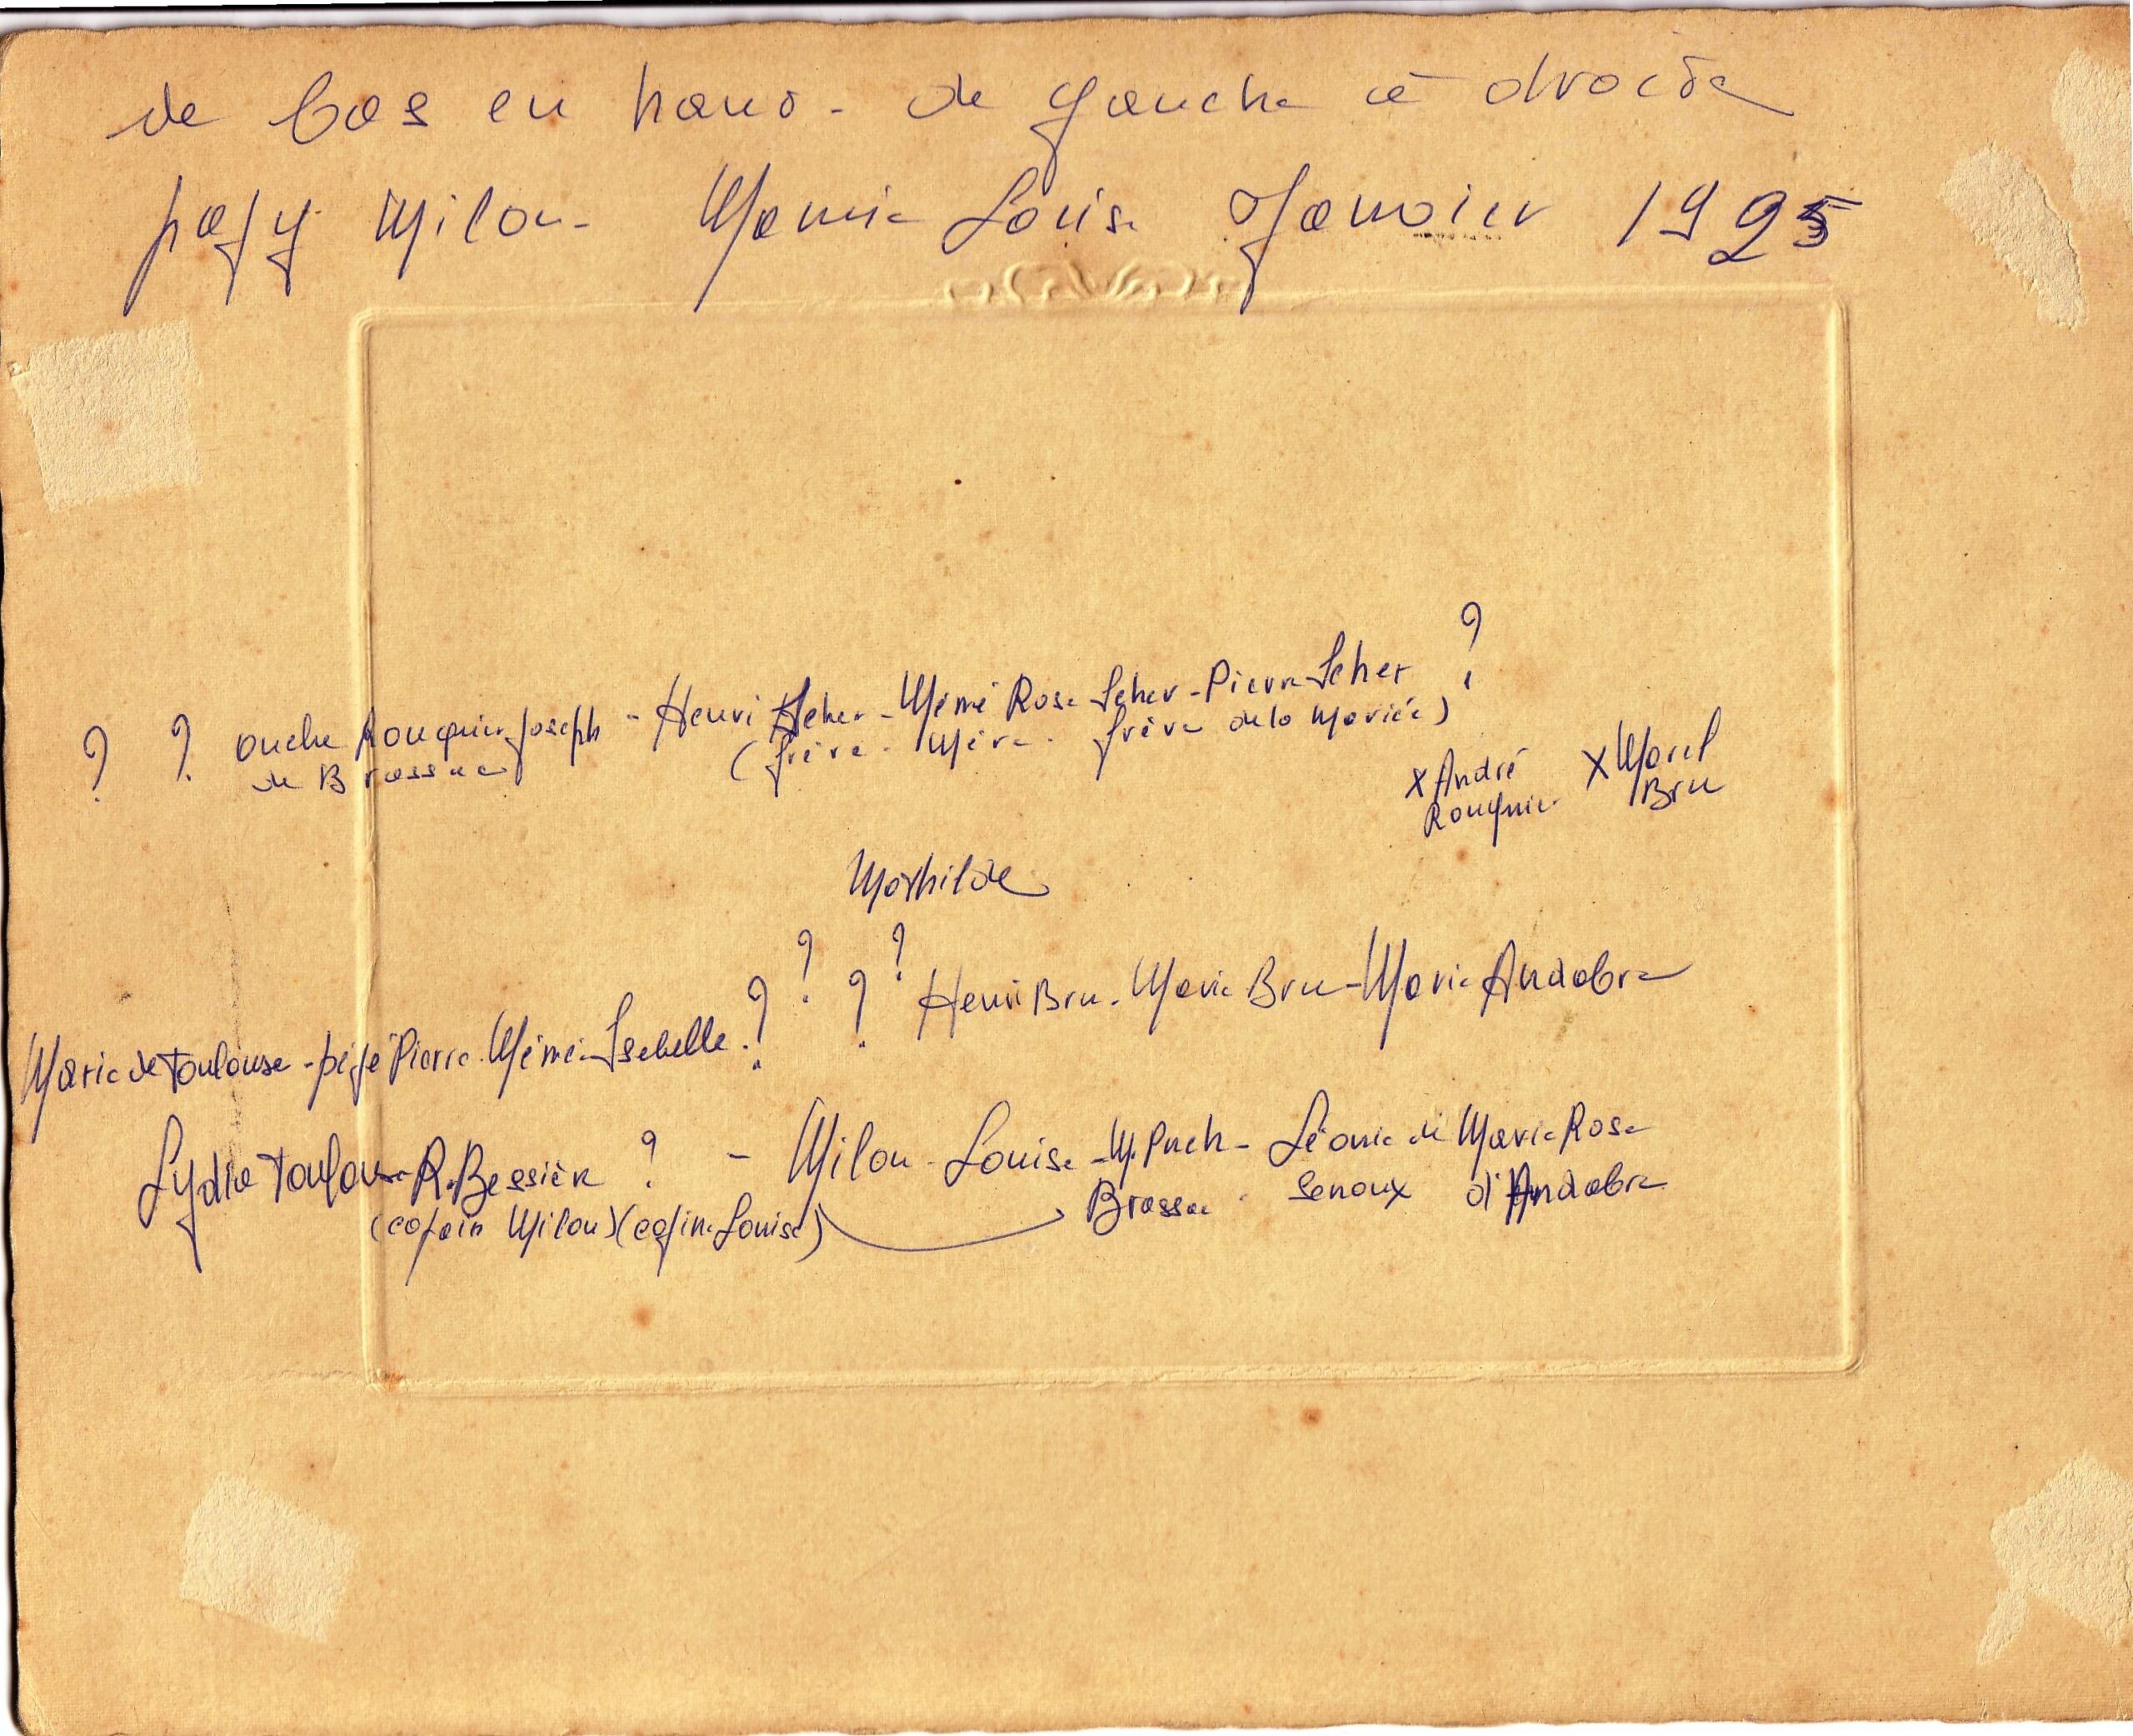 de bas en haut - de gauche à droite
papy Milou - Mamie Louise Janvier 1925
?
? ? oncle Rouquier Joseph - Henri Seher - Mémé Rose Seher - Pierre Seher
de Brassac (frère - Mère - frère de la Mariée)
x André x Marcel
Rouquier Bru
Mathilde
? ?
Marie de Toulouse - pépé Pierre - Mémé Isabelle - ? ? Henri Bru - Marie Bru - Marie Andabre
Lydie Toulouse R. Bessière ? - Milou - Louise - M. Puech - Léonie de Marie Rose
(copain Milou) (copine Louise) Brassac Senaux d'Andabre